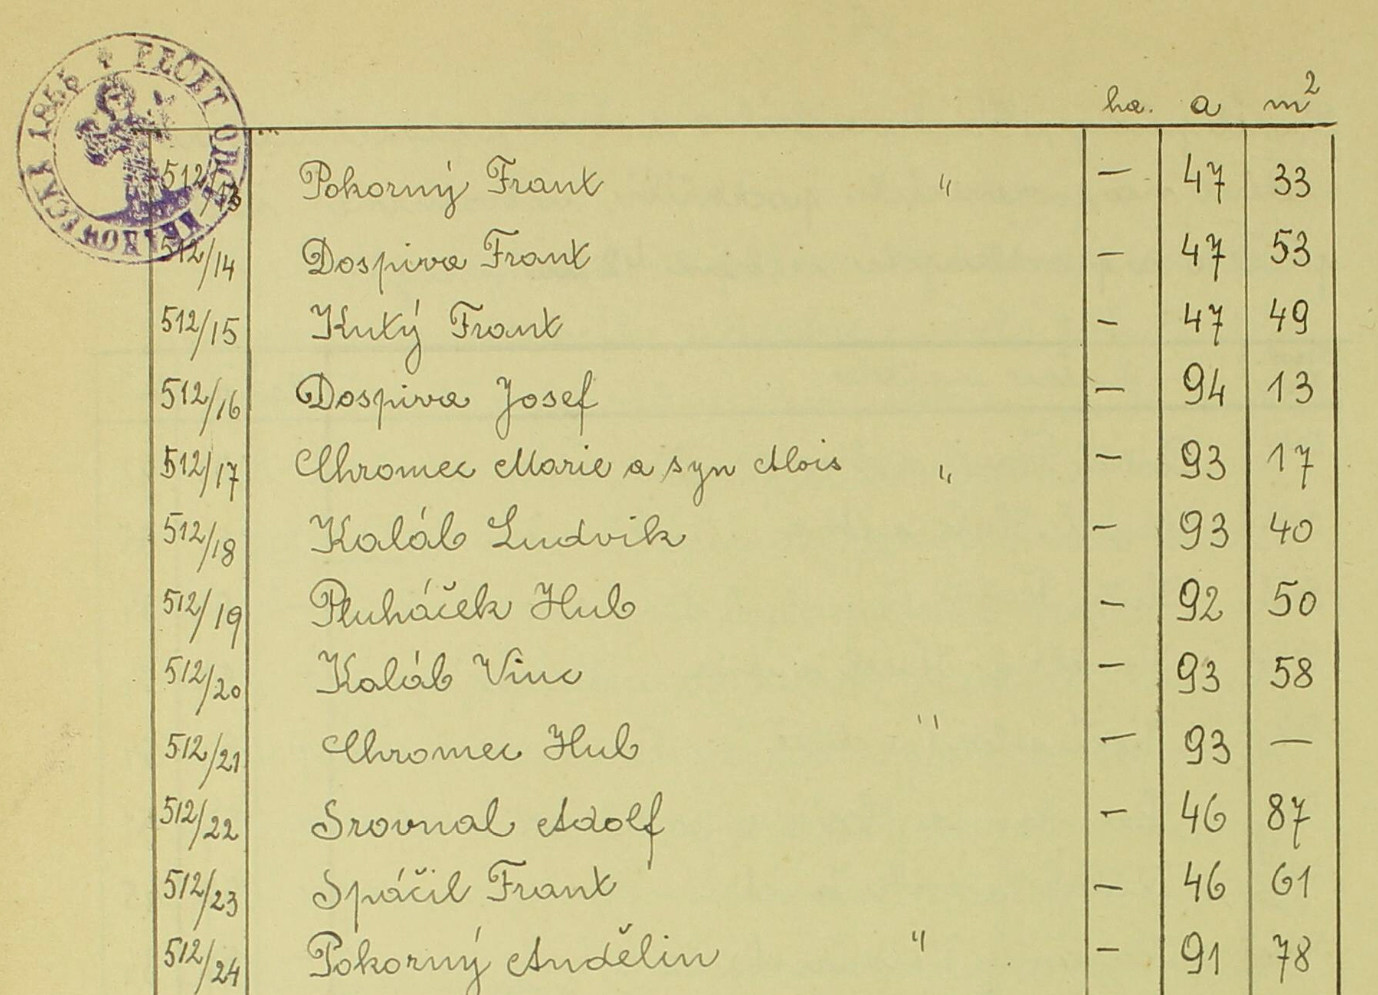 PEČET OBCE 1855
ha. a m²
512/13 Pokorný Frant " — 47 33
512/14 Dospiva Frant — 47 53
512/15 Kutý Frant — 47 49
512/16 Dospiva Josef — 94 13
512/17 Chromec Marie a syn Alois " — 93 17
512/18 Kaláb Ludvik — 93 40
512/19 Pluháček Hub — 92 50
512/20 Kaláb Vinc — 93 58
512/21 Chromec Hub " — 93 —
512/22 Srovnal Adolf — 46 87
512/23 Spáčil Frant — 46 61
512/24 Pokorný Andělin " — 91 78